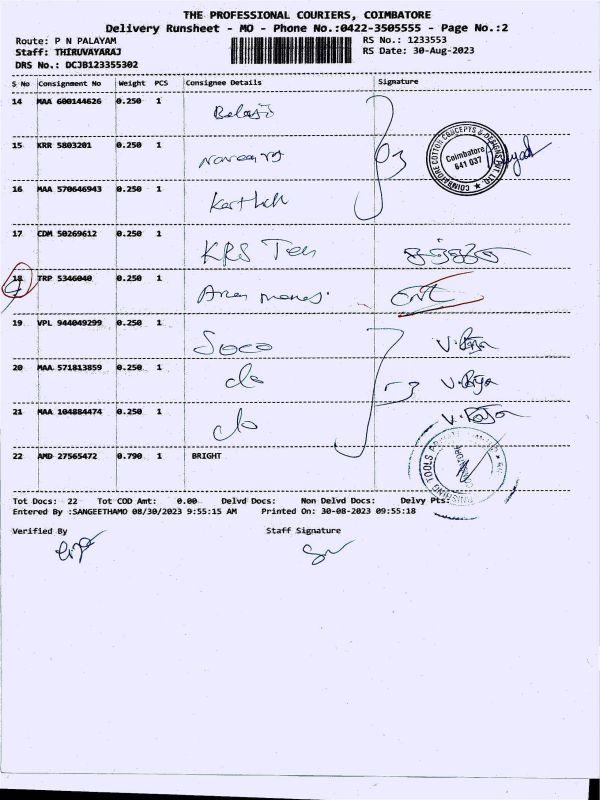 THE PROFESSIONAL COURIERS, COIMBATORE
Delivery Runsheet - MO - Phone No.:0422-3505555 - Page No.:2
Route: P N PALAYAM RS No.: 1233553
Staff: THIRUVAYARAJ RS Date: 30-Aug-2023
DRS No.: DCJB123355302
S No Consignment No Weight PCS Consignee Details Signature
14 MAA 600144626 0.250 1 Balaji
15 KRR 5803201 0.250 1
16 MAA 570646943 0.250 1 Karthik
COIMBATORE COTTON CONCEPTS & DESIGNS PVT LTD.
Coimbatore
641 037
17 CDM 50269612 0.250 1 KRS Tex
18 TRP 5346040 0.250 1
19 VPL 944049299 0.250 1 Soco
20 MAA 571813859 0.250 1 do
21 MAA 104884474 0.250 1 do
22 AMD 27565472 0.790 1 BRIGHT
FINISHING TOOLS
Tot Docs: 22 Tot COD Amt: 0.00 Delvd Docs: Non Delvd Docs: Delvy Pts:
Entered By :SANGEETHAMO 08/30/2023 9:55:15 AM Printed On: 30-08-2023 09:55:18
Verified By Staff Signature